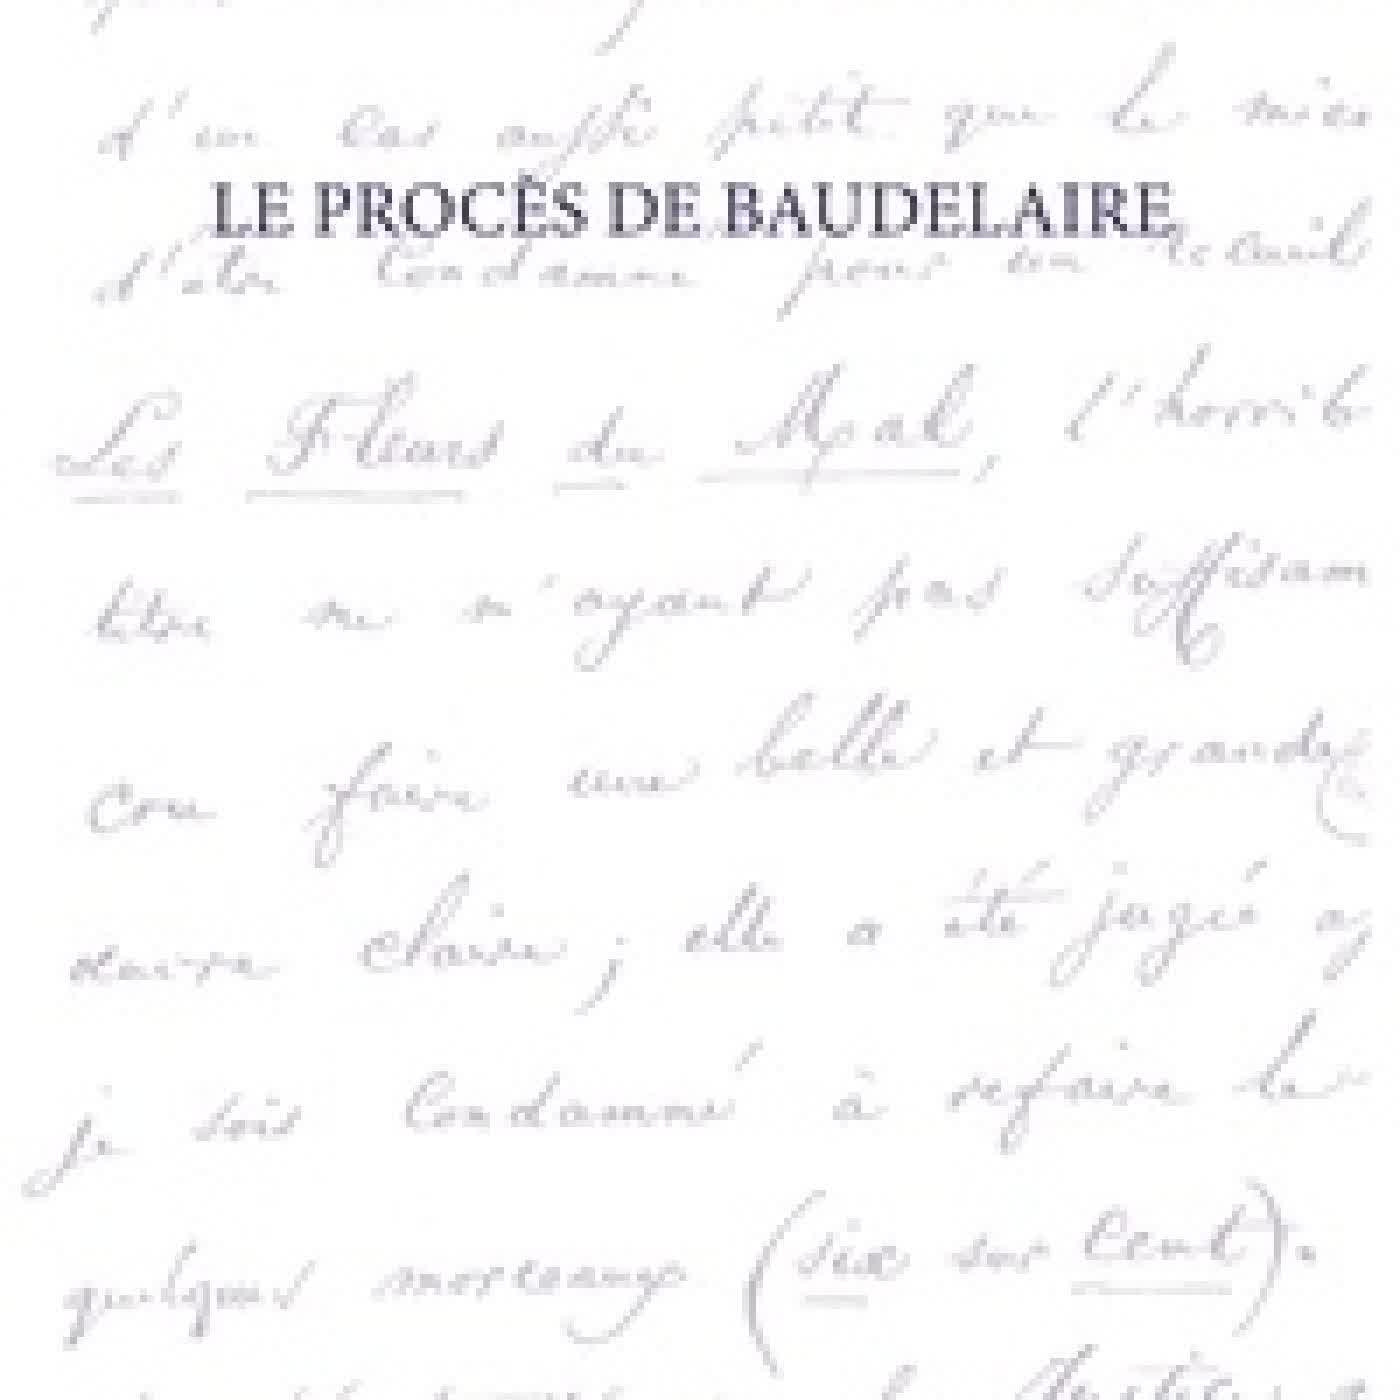 d'un cas aussi petit que le mien
LE PROCÈS DE BAUDELAIRE
d'être condamné pour un recueil
Les Fleurs du Mal, l'horrib
titre ne n'ayant pas suffisam
cru faire une belle et grande
œuvre claire ; elle a été jugée
je suis condamné à refaire le
quelques morceaux (six sur cent).